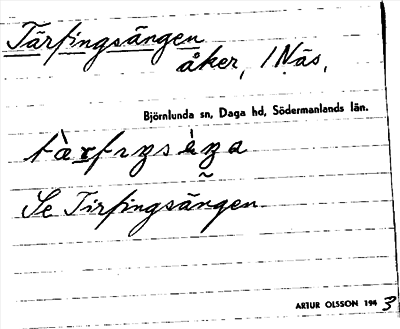 Tärfingsängen
åker, 1 Näs,
Björnlunda sn, Daga hd, Södermanlands län.
Se Tirfingsängen
ARTUR OLSSON 1943